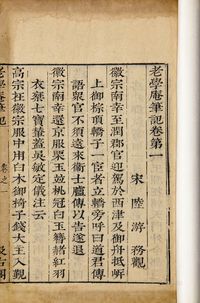 老學庵筆記卷第一
宋 陸游 務觀
徽宗南幸至潤郡官迎駕於西津及御舟抵岸
上御棕頂轎子一宦者立轎旁呼曰道君傳
語眾官不須遠來衛士臚傳以告遂退
徽宗南幸還京服栗玉並桃冠白玉簪赭紅羽
衣乘七寶輦蓋吳敏定儀注云
高宗在徽宗服中用白木御椅子錢大主入覲
老學庵筆記
卷之一
汲古閣